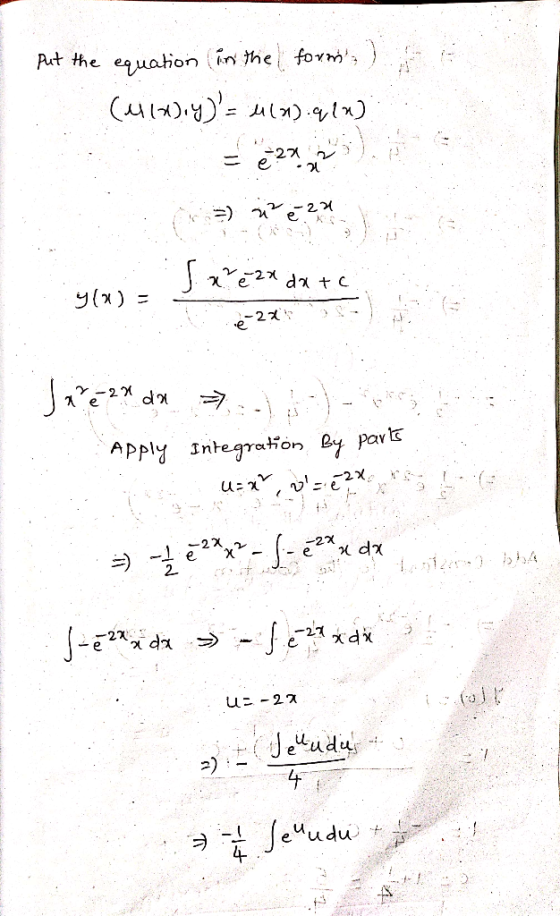 Put the equation (in the form,)
(μ(x).y)' = μ(x).q(x)
= e^-2x . x^2
⇒ x^2 e^-2x
y(x) = ∫ x^2 e^-2x dx + c / e^-2x
∫ x^2 e^-2x dx ⇒
Apply Integration By parts
u = x^2, v' = e^-2x
⇒ -1/2 e^-2x x^2 - ∫ -e^-2x x dx
∫ -e^-2x x dx ⇒ - ∫ e^-2x x dx
u = -2x
⇒ - ∫ e^u u du / 4
⇒ -1/4 ∫ e^u u du